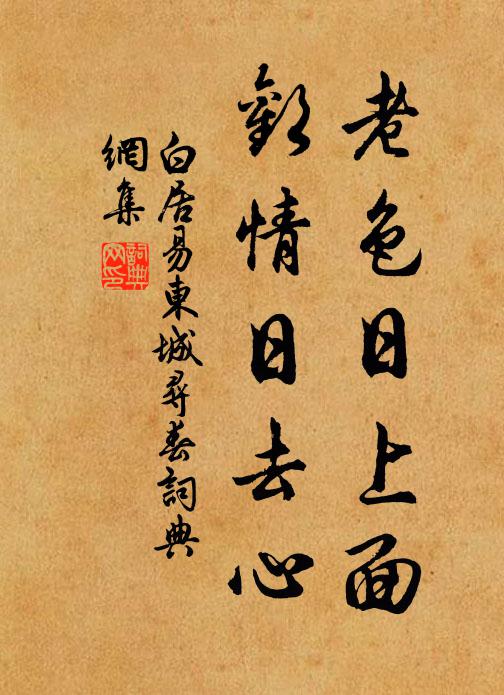 老色日上面
歡情日去心
白居易東城尋春詞典
網集
詞典
网印